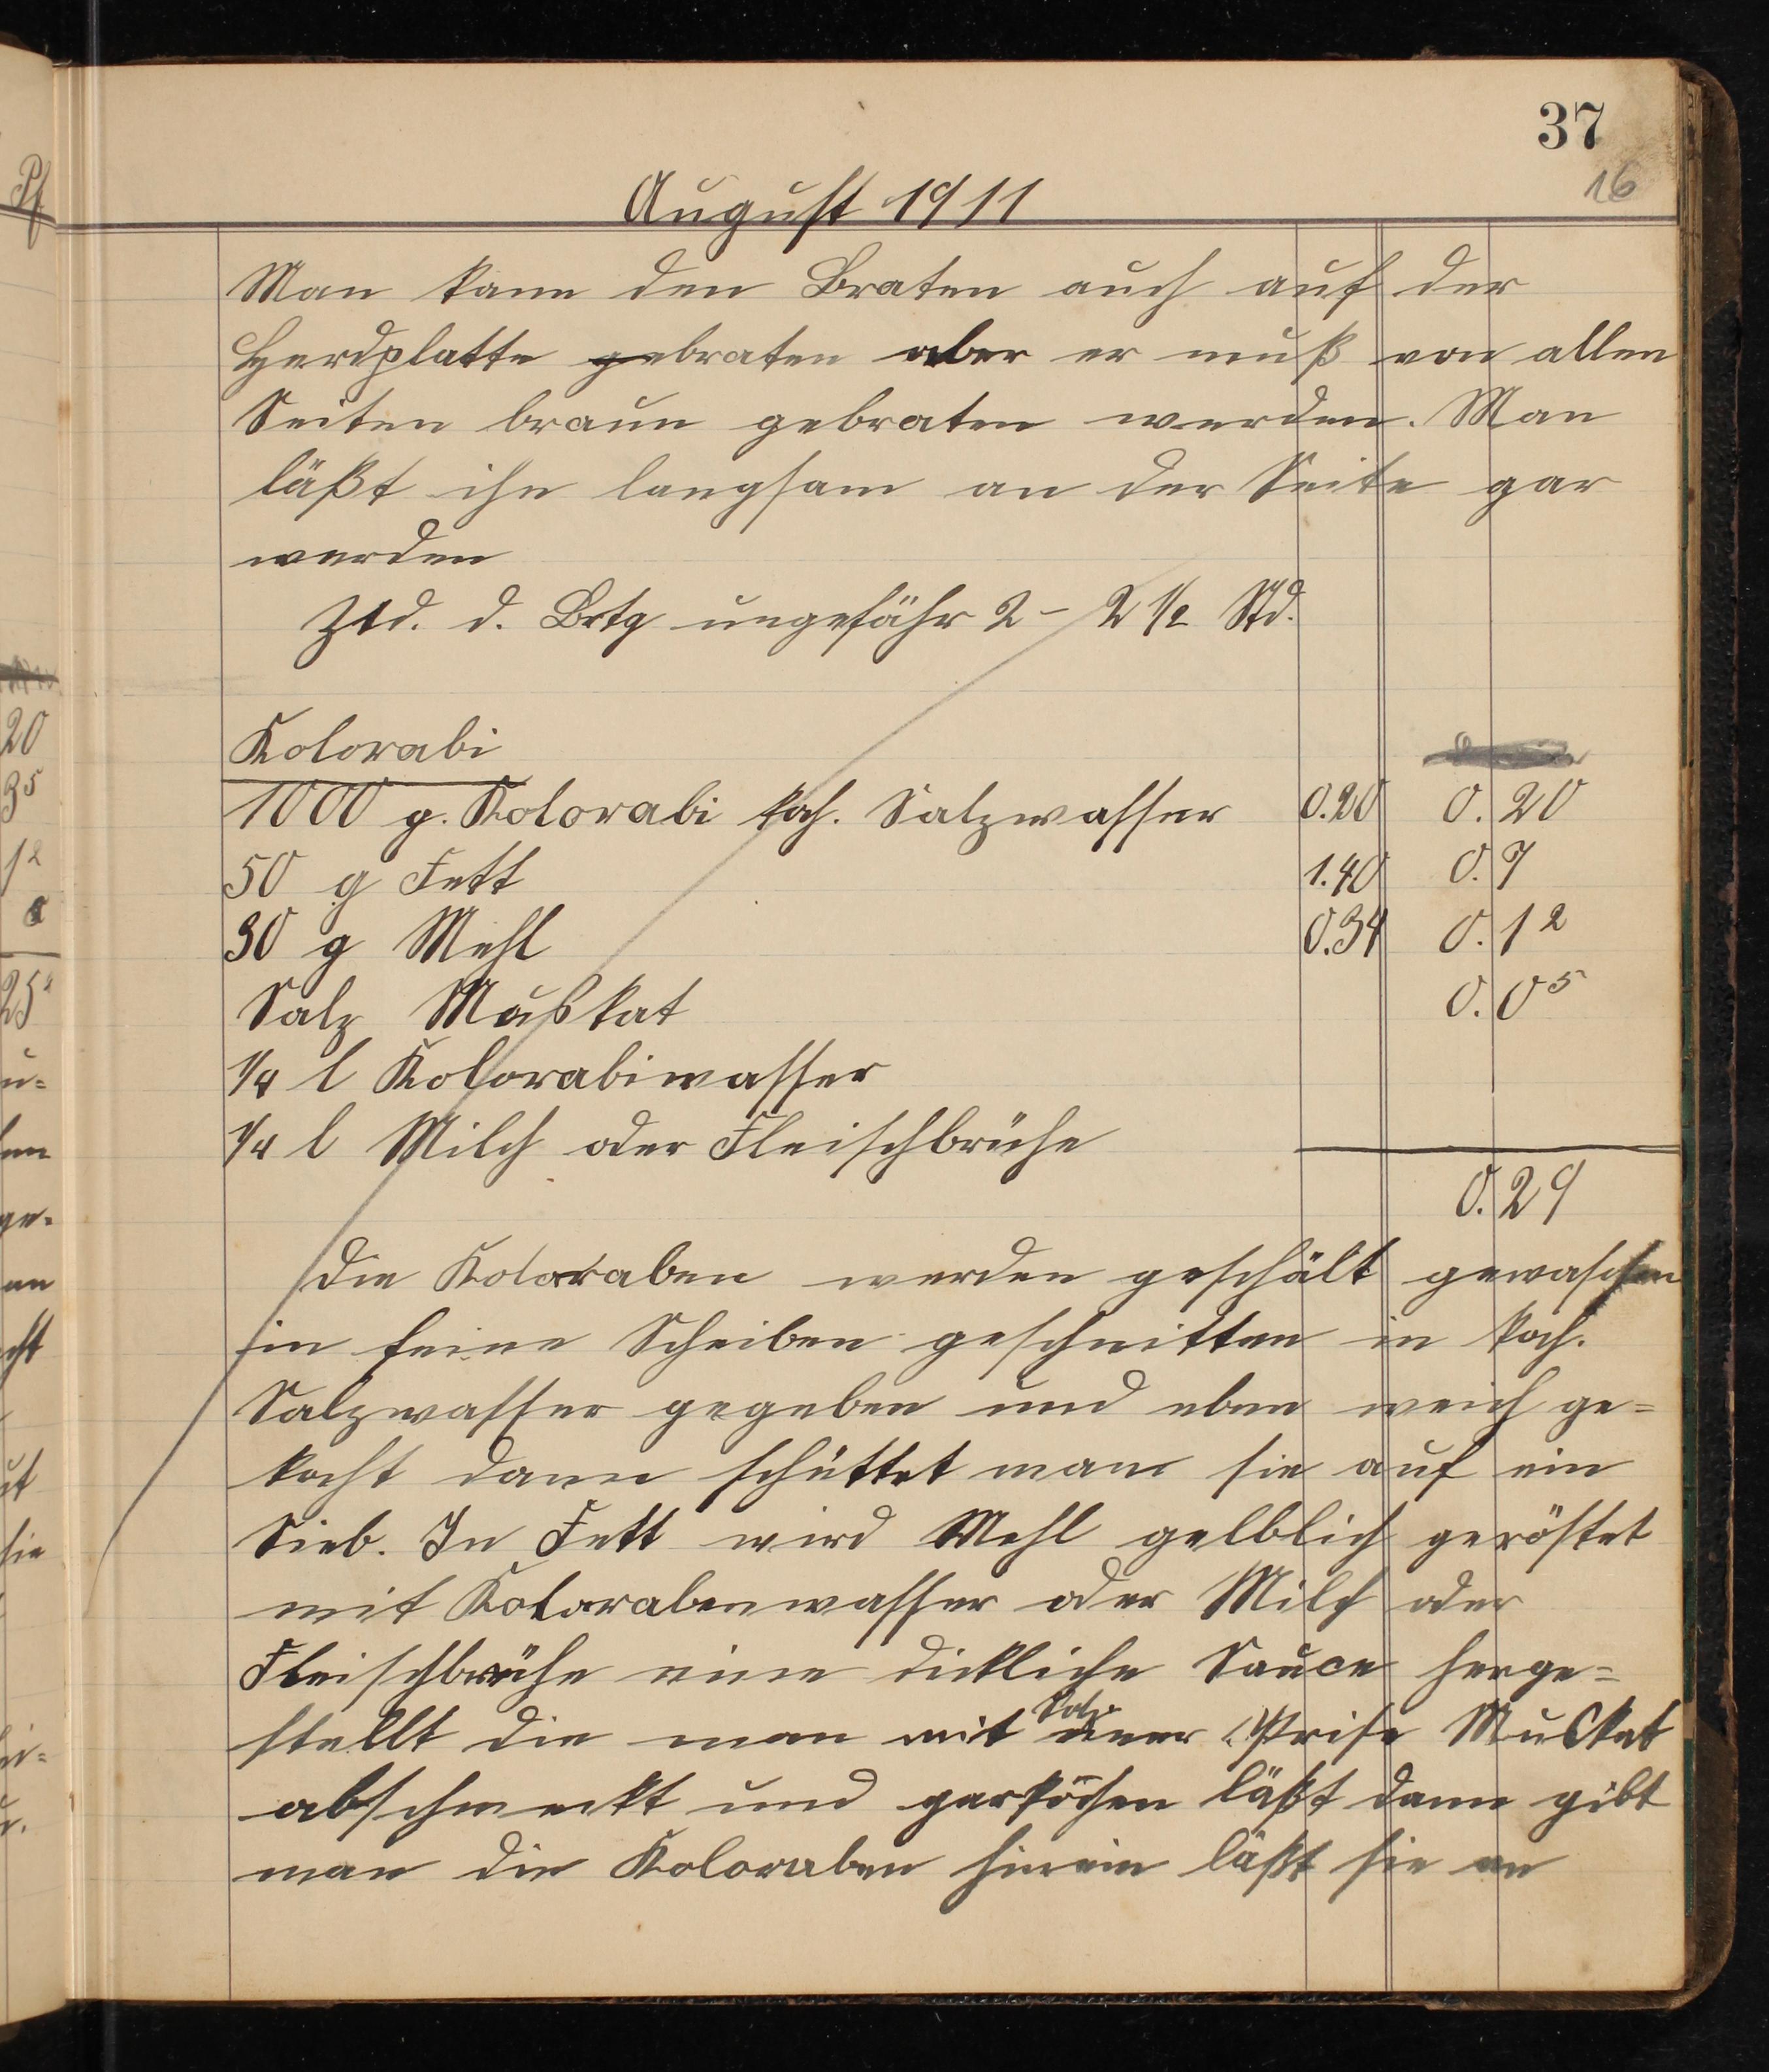 37
16
August 1911
Man kann den Braten auch auf der
Herdplatte gebraten aber er muß von allen
Seiten braun gebraten werden. Man
läßt ihn langsam an der Seite gar
werden
Ztd. d. Brtg ungefähr 2 - 2 1/2 Std.
Kolorabi
1000 g. Kolorabi koch. Salzwasser 0.20 0.20
50 g Fett 1.40 0.7
30 g Mehl 0.34 0.1²
Salz Mußkat 0.0⁵
1/4 l Kolorabiwasser
1/4 l Milch oder Fleischbrühe
0.29
Die Koloraben werden geschält gewaschen
in feine Scheiben geschnitten in koch.
Salzwasser gegeben und eben weich ge=
kocht dann schüttet man sie auf ein
Sieb. In Fett wird Mehl gelblich geröstet
mit Kolorabenwasser oder Milch oder
Fleischbrühe eine dickliche Sauce herge=
stellt die man mit Salz einer Prise Muskat
abschmeckt und garkochen läßt dann gibt
man die Koloraben hinein läßt sie an